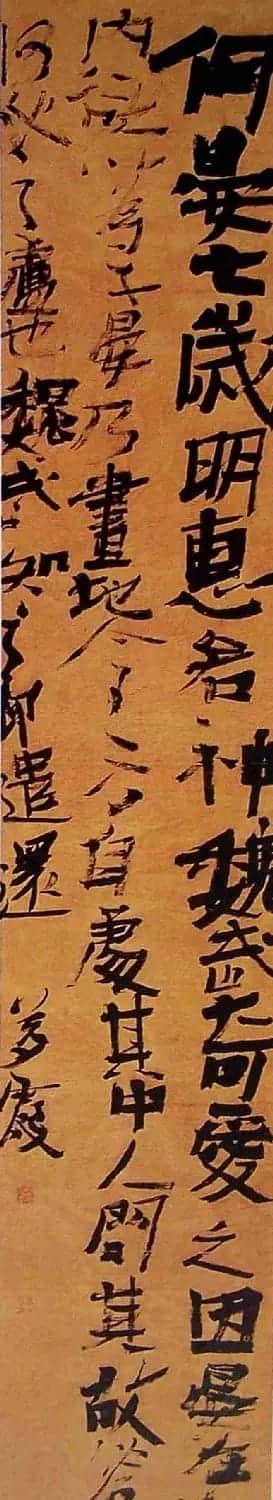 何晏七歲明惠若神魏武奇愛之因晏在
內欲以為子晏乃畫地令方自處其中人問其故答
何氏之廬也魏武知之即遣還